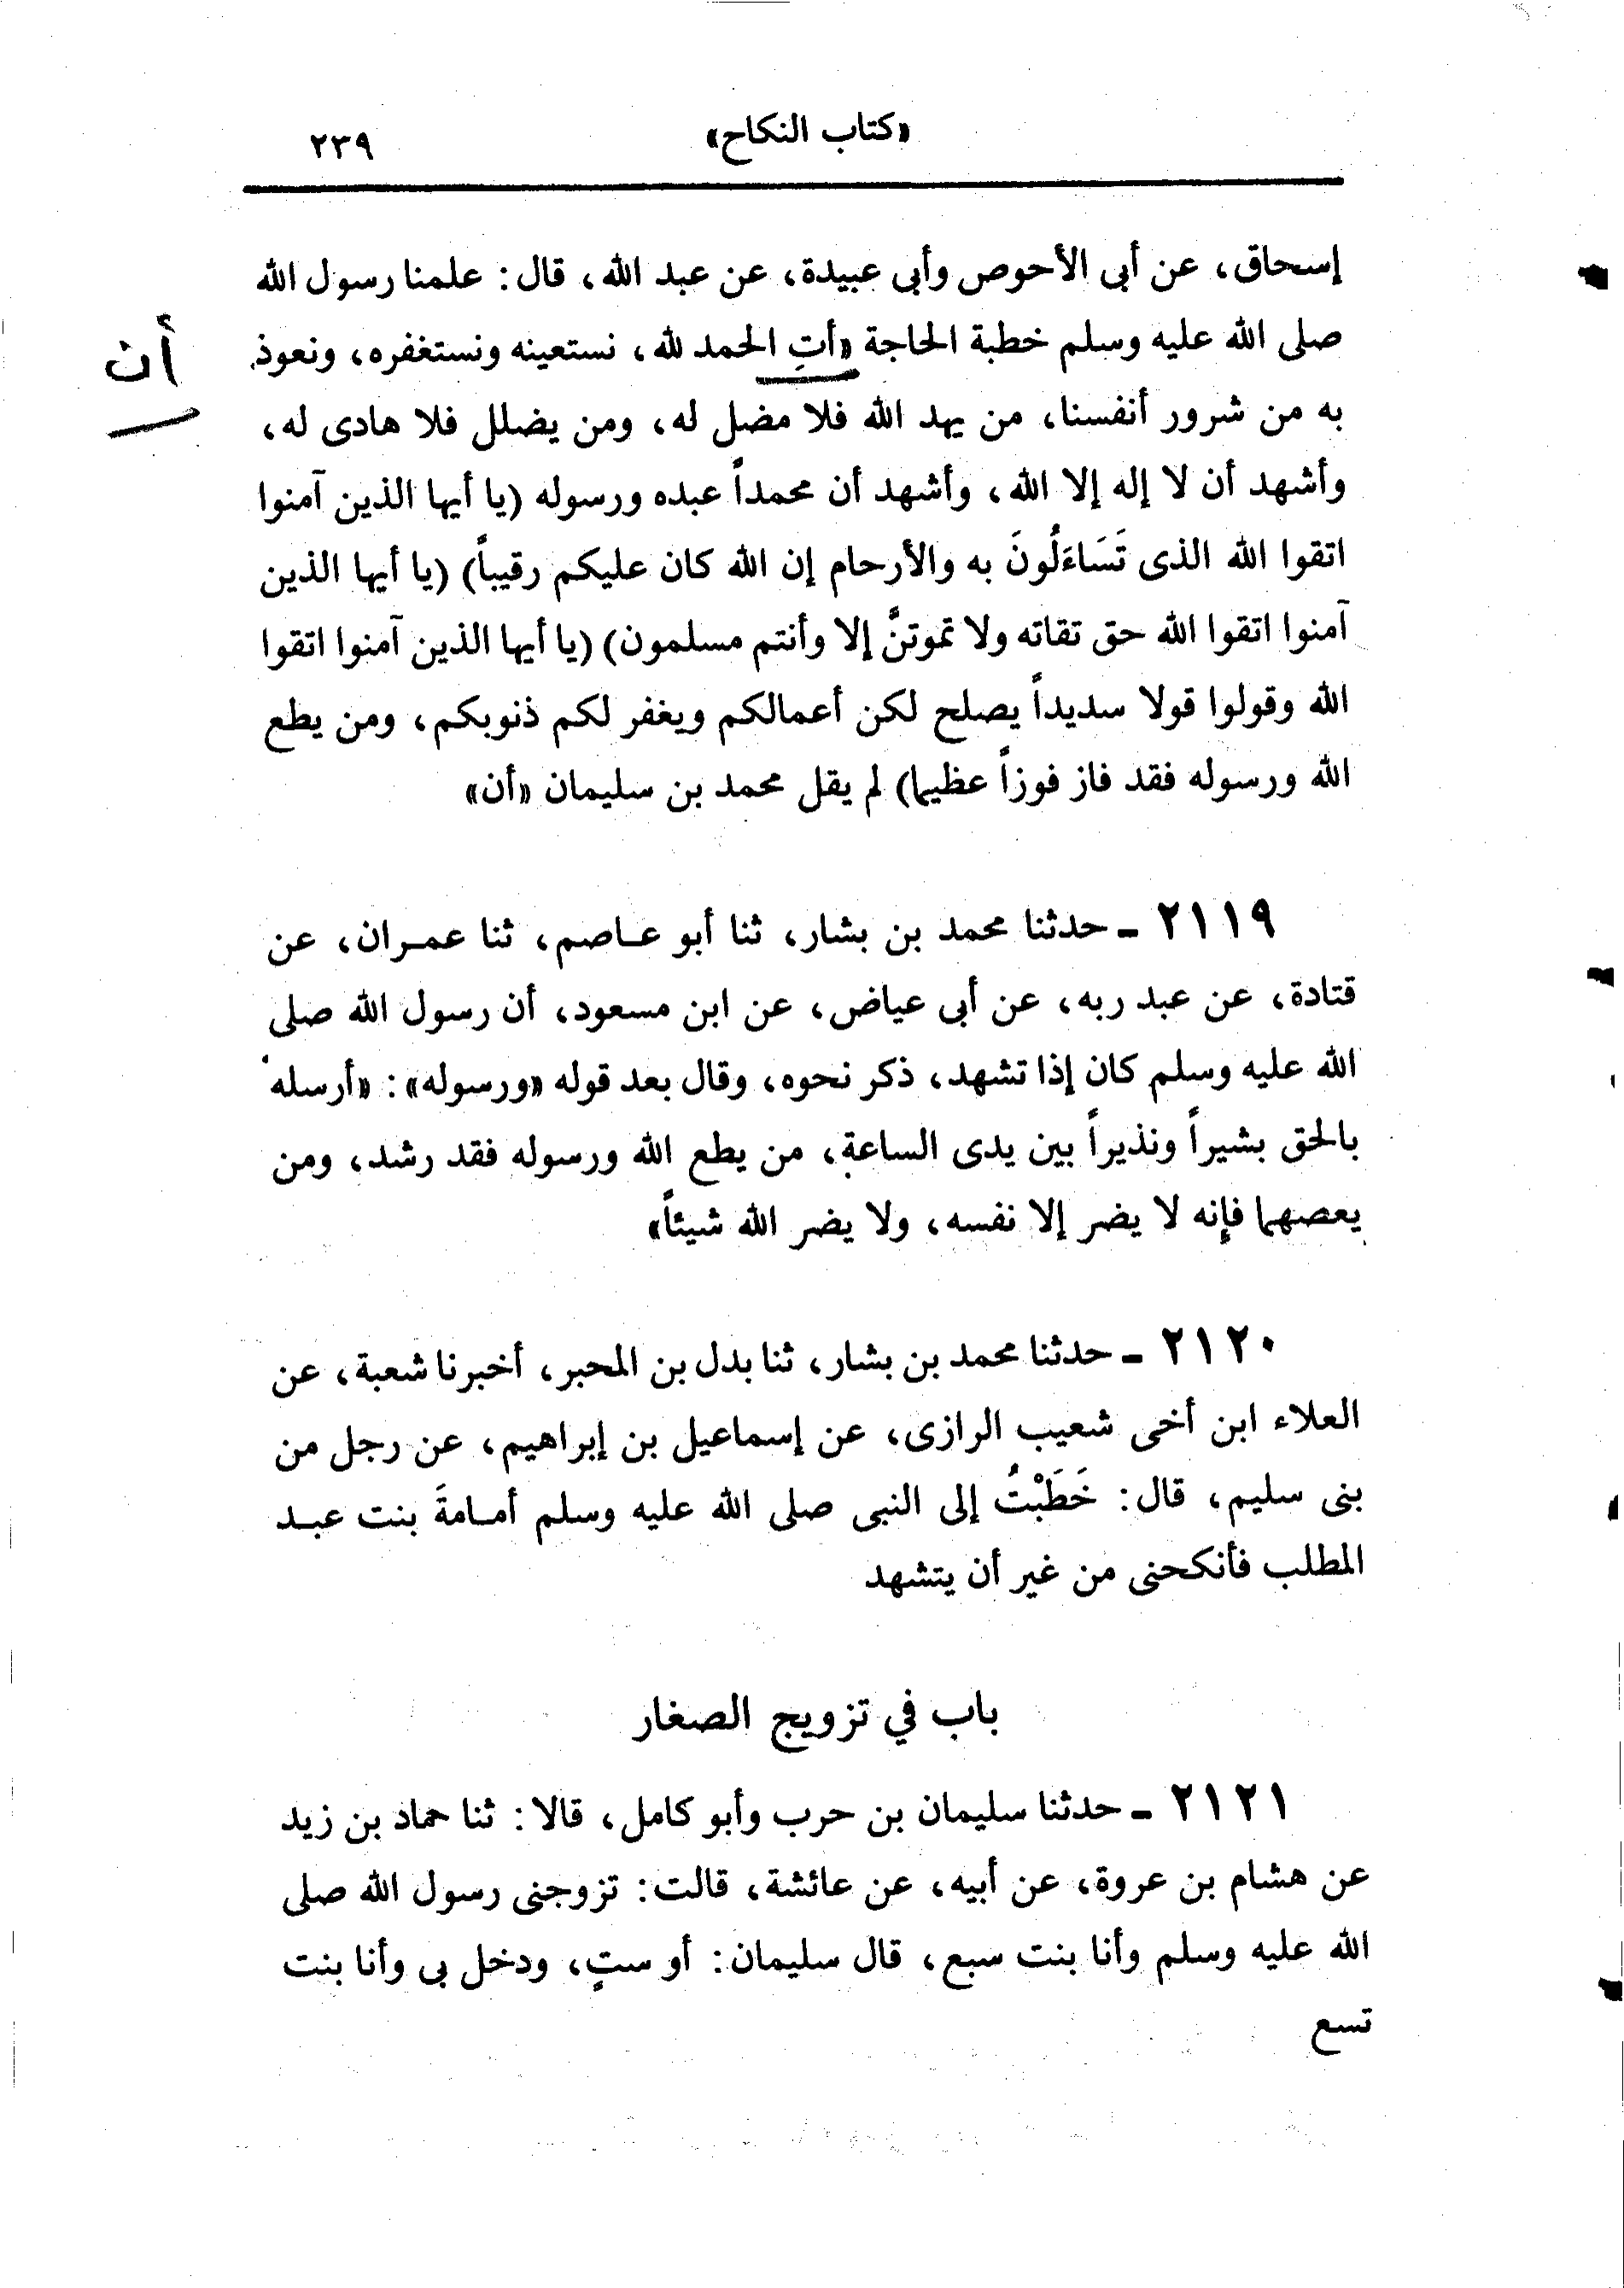 «كتاب النكاح»
٢٣٩
إسحاق، عن أبى الأحوص وأبى عبيدة، عن عبد الله، قال: علمنا رسول الله
صلى الله عليه وسلم خطبة الحاجة «أتِ الحمد لله، نستعينه ونستغفره، ونعوذ
أن
به من شرور أنفسنا، من يهد الله فلا مضل له، ومن يضلل فلا هادى له،
وأشهد أن لا إله إلا الله، وأشهد أن محمداً عبده ورسوله (يا أيها الذين آمنوا
اتقوا الله الذى تَسَاءَلُونَ به والأرحام إن الله كان عليكم رقيباً) (يا أيها الذين
آمنوا اتقوا الله حق تقاته ولا تموتنَّ إلا وأنتم مسلمون) (يا أيها الذين آمنوا اتقوا
الله وقولوا قولا سديداً يصلح لكن أعمالكم ويغفر لكم ذنوبكم، ومن يطع
الله ورسوله فقد فاز فوزاً عظيما) لم يقل محمد بن سليمان «أن»
٢١١٩ ـ حدثنا محمد بن بشار، ثنا أبو عـاصم، ثنا عمـران، عن
قتادة، عن عبد ربه، عن أبى عياض، عن ابن مسعود، أن رسول الله صلى
الله عليه وسلم كان إذا تشهد، ذكر نحوه، وقال بعد قوله «ورسوله»: «أرسله
بالحق بشيراً ونذيراً بين يدى الساعة، من يطع الله ورسوله فقد رشد، ومن
يعصهما فإنه لا يضر إلا نفسه، ولا يضر الله شيئاً»
٢١٢٠ ـ حدثنا محمد بن بشار، ثنا بدل بن المحبر، أخبرنا شعبة، عن
العلاء ابن أخى شعيب الرازى، عن إسماعيل بن إبراهيم، عن رجل من
بنى سليم، قال: خَطَبْتُ إلى النبى صلى الله عليه وسلم أمـامةَ بنت عبـد
المطلب فأنكحنى من غير أن يتشهد
باب في تزويج الصغار
٢١٢١ ـ حدثنا سليمان بن حرب وأبو كامل، قالا: ثنا حماد بن زيد
عن هشام بن عروة، عن أبيه، عن عائشة، قالت: تزوجنى رسول الله صلى
الله عليه وسلم وأنا بنت سبع، قال سليمان: أو ستٍ، ودخل بى وأنا بنت
تسع